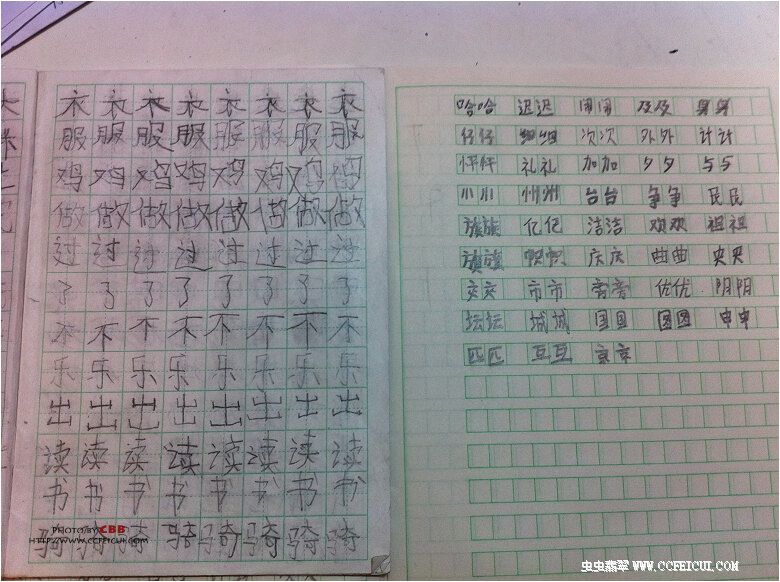 衣衣衣衣衣衣衣衣
服服服服服服服服
鸡鸡鸡鸡鸡鸡鸡鸡
做做做做做做做做
过过过过过过过过
了了了了了了了了
不不不不不不不不
乐乐乐乐乐乐乐乐
出出出出出出出出
读读读读读读读读
书书书书书书书书
骑骑骑骑骑骑骑骑
PHOTO BY CBB
HTTP://WWW.CCFEICUI.COM
哈哈 迟迟 闹闹 及及 身身
仔仔 细细 次次 外外 计计
怦怦 礼礼 加加 夕夕 与与
小小 州州 台台 争争 民民
族族 亿亿 洁洁 欢欢 祖祖
旗旗 帜帜 庆庆 曲曲 央央
交交 市市 旁旁 优优 阴阴
坛坛 城城 国国 图图 申申
匹匹 互互 京京
虫虫翡翠 WWW.CCFEICUI.COM